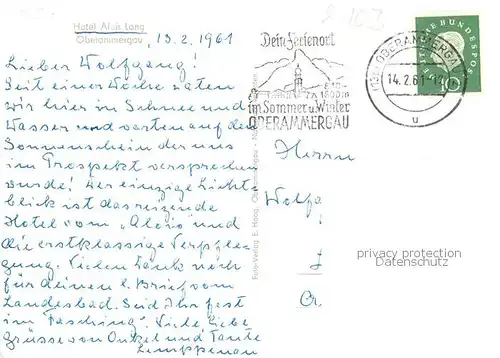 Hotel Alois Lang
Oberammergau
, 13.2.1961
Lieber Wolfgang!
Seit einer Woche waten
wir hier in Schnee und
Wasser und warten auf den
Sonnenschein der uns
im Prospekt versprochen
wurde! Der einzige Licht-
blick ist das reizende
Hotel vom "Alois" und
die erstklassige Verpfle-
gung. Vielen Dank noch
für deinen l. Brief vom
Landesbad. Seid Ihr fest
im "Fasching". Viele liebe
Grüsse von Onkel und Tante
Lemppenau
Foto-Verlag E. Haag, Oberammergau
Dein Ferienort
im Sommer u. Winter
OBERAMMERGAU
OBERAMMERGAU
14.2.61
u
DEUTSCHE BUNDESPOST
10
Herrn
Wolfg
privacy protection
Datenschutz